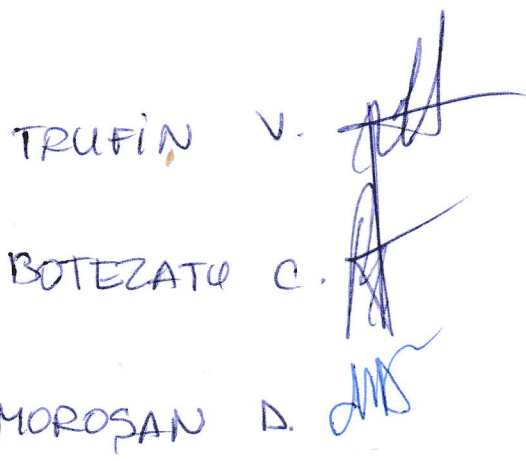 TRUFIN V.
BOTEZATU C.
MOROȘAN D.